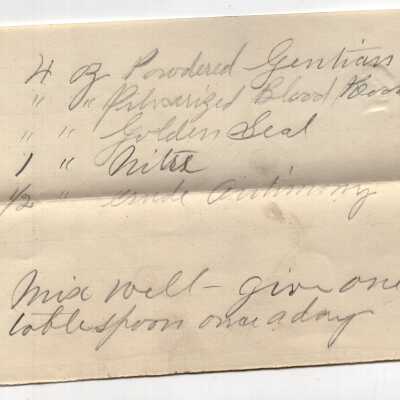 4 oz Powdered Gentian
" " Pulverized Blood Roo
" " Golden Seal
1 " Nitre
1/2 " crude antimony
Mix well - give one
tablespoon once a day